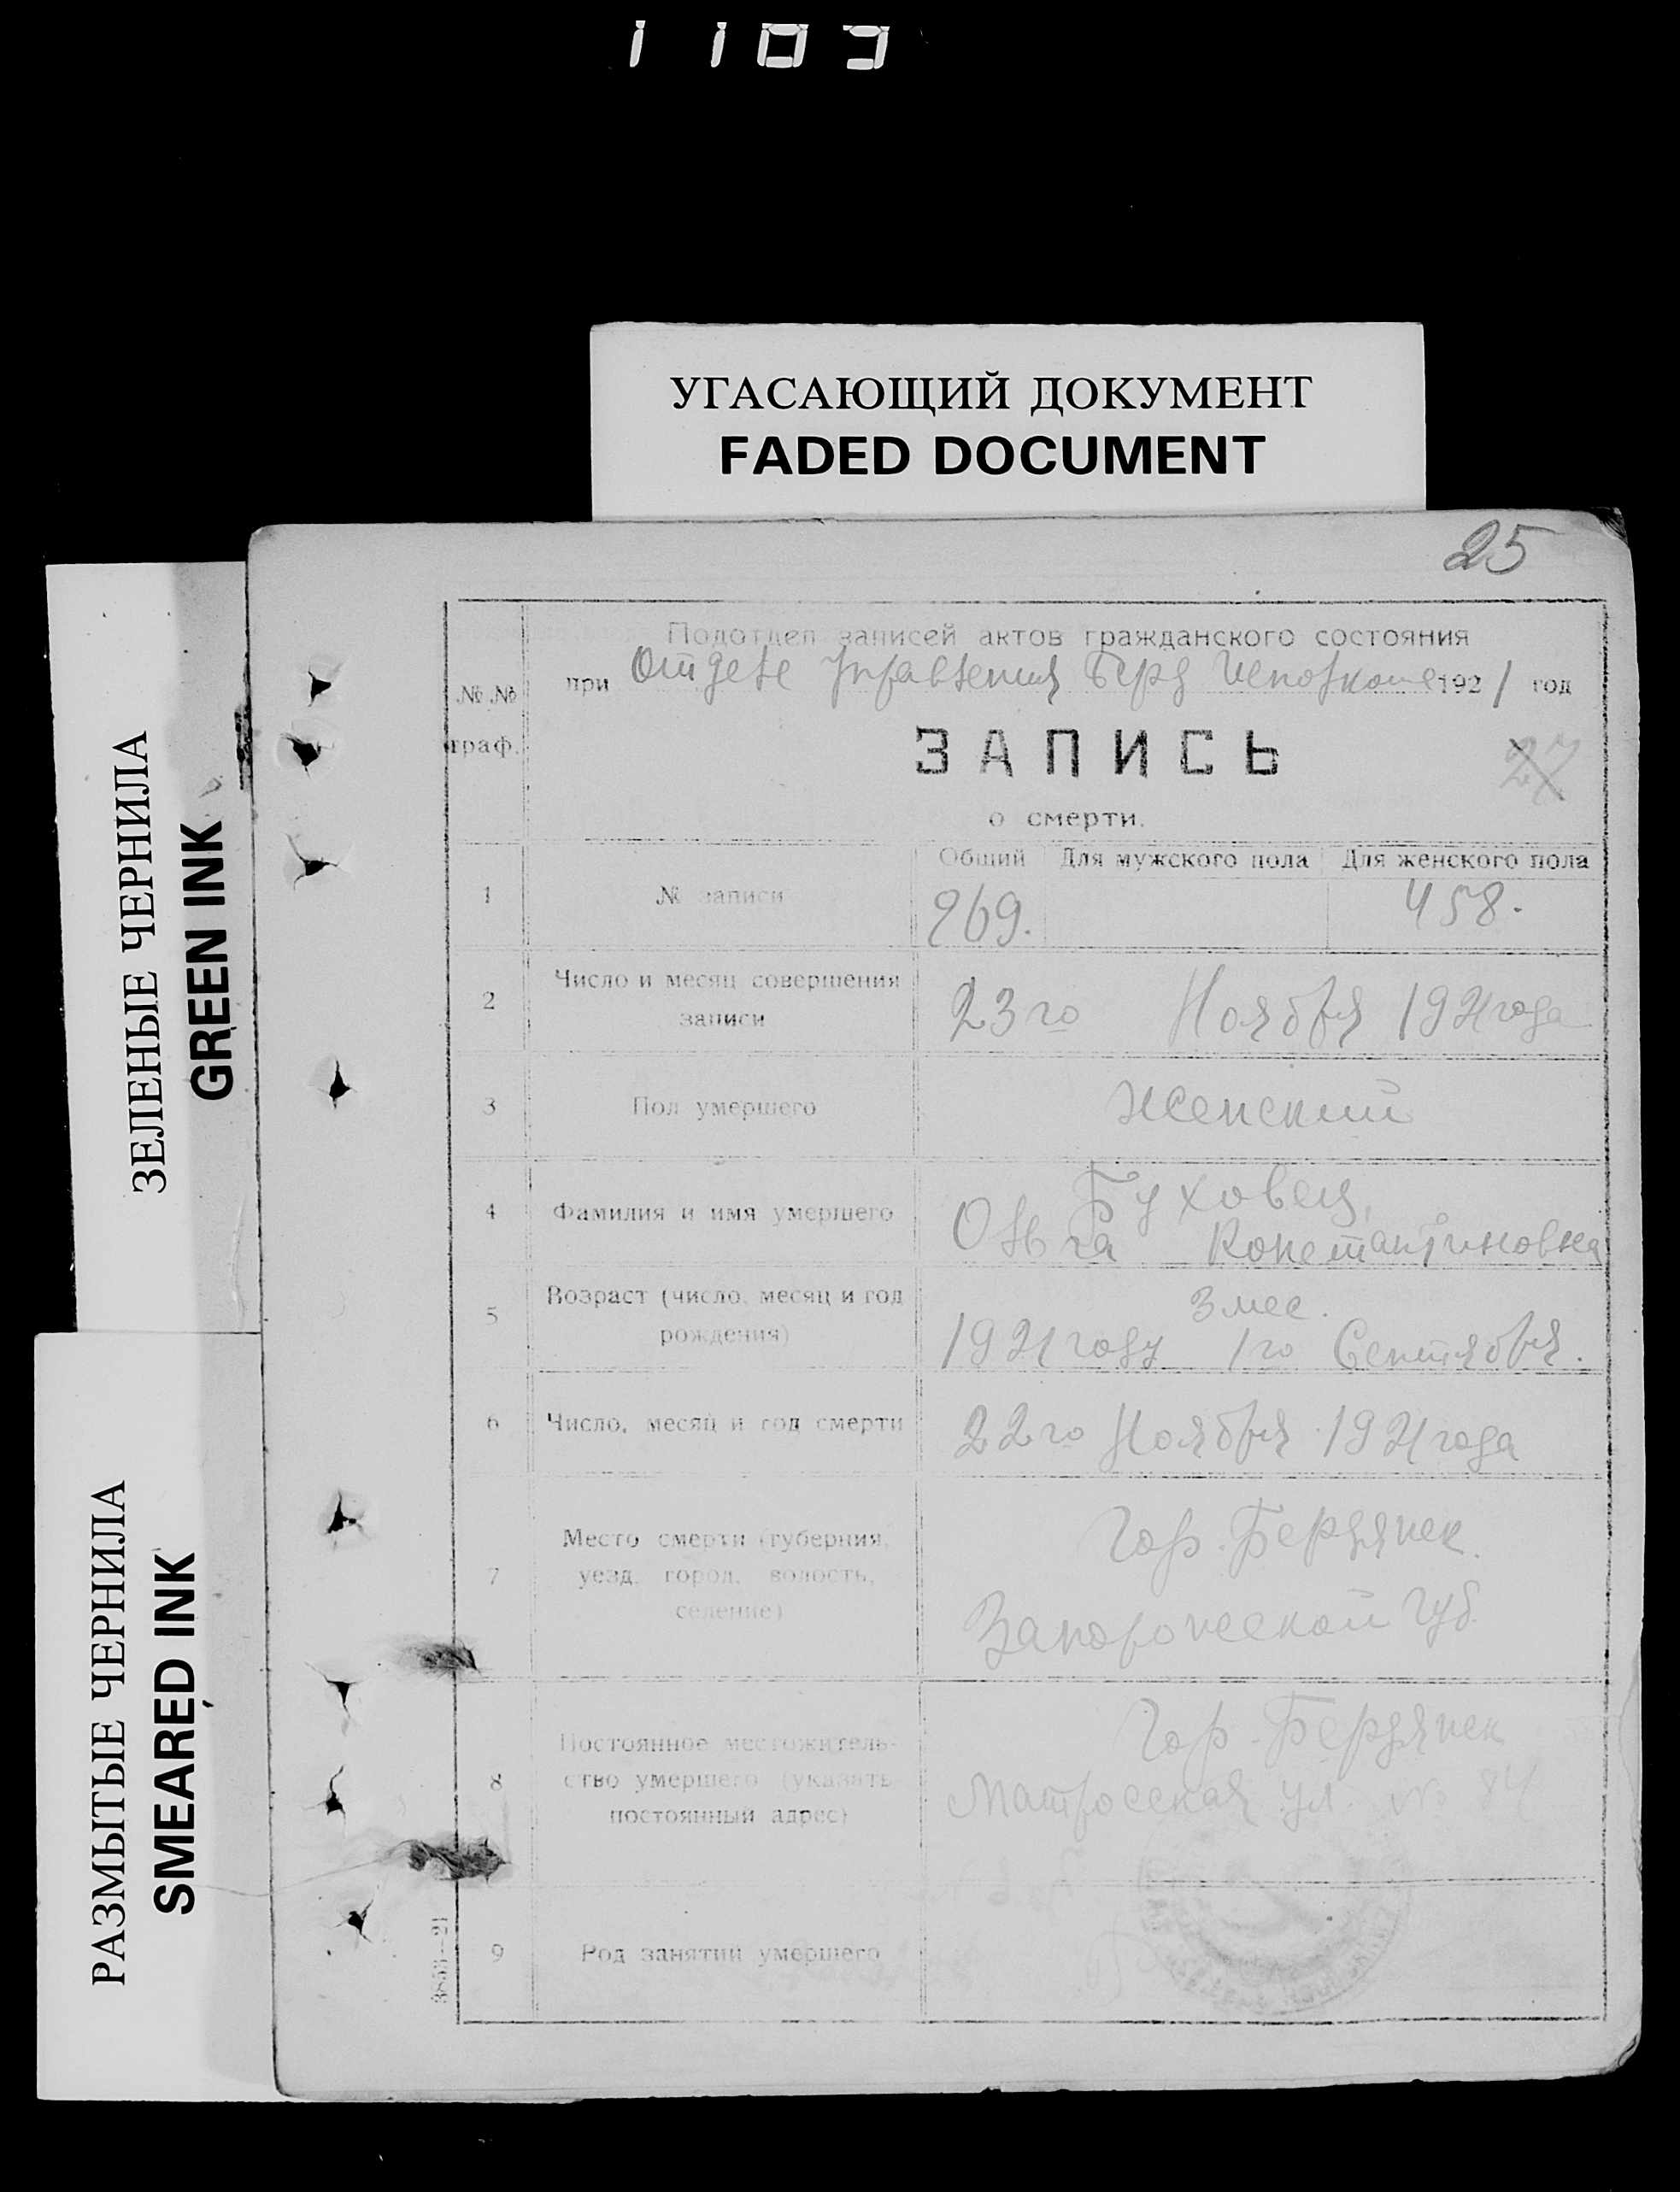 1103
УГАСАЮЩИЙ ДОКУМЕНТ
FADED DOCUMENT
ЗЕЛЕНЫЕ ЧЕРНИЛА
GREEN INK
РАЗМЫТЫЕ ЧЕРНИЛА
SMEARED INK
25
Подотдел записей актов гражданского состояния
№№ граф.
при Отделе Управления Берд Исполкома 1921 год
ЗАПИСЬ
27
о смерти.
Общий Для мужского пола Для женского пола
1 № записи 969. 458.
2 Число и месяц совершения
записи
23го Ноября 1921 года
3 Пол умершего Женский
4 Фамилия и имя умершего
Буховец,
Ольга Константиновна
5 Возраст (число, месяц и год
рождения)
3 мес.
1921 году 1го Сентября.
6 Число, месяц и год смерти 22го Ноября 1921 года
7 Место смерти (губерния,
уезд, город, волость,
селение)
Гор. Бердянск.
Запорожской Губ.
8 Постоянное местожитель-
ство умершего (указать
постоянный адрес)
Гор. Бердянск
Матросская ул. № 84
9 Род занятий умершего